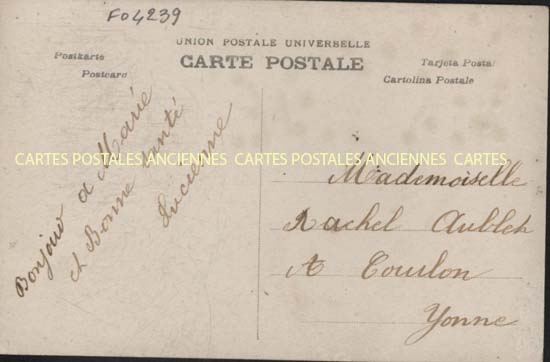 Fo4239
UNION POSTALE UNIVERSELLE
CARTE POSTALE
Postkarte
Postcard
Tarjeta Postal
Cartolina Postale
Bonjour a Marie
et Bonne Santé
Lucienne
CARTES POSTALES ANCIENNES CARTES POSTALES ANCIENNES CARTES
Mademoiselle
Rachel Aublet
A Courlon
Yonne